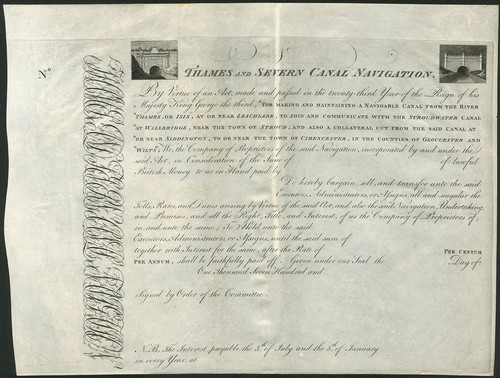 No
THAMES AND SEVERN CANAL NAVIGATION.
By Virtue of an Act, made and passed in the twenty-third Year of the Reign of his
Majesty King George the third, "FOR MAKING AND MAINTAINING A NAVIGABLE CANAL FROM THE RIVER
"THAMES OR ISIS, AT OR NEAR LEACHLADE, TO JOIN AND COMMUNICATE WITH THE STROUDWATER CANAL
"AT WALLBRIDGE, NEAR THE TOWN OF STROUD; AND ALSO A COLLATERAL CUT FROM THE SAID CANAL AT
"OR NEAR SIDDINGTON, TO OR NEAR THE TOWN OF CIRENCESTER, IN THE COUNTIES OF GLOUCESTER AND
"WILTS", We, the Company of Proprietors of the said Navigation, incorporated by and under the
said Act, in Consideration of the Sum of of lawful
British Money to us in Hand paid by
Do hereby bargain, sell, and transfer unto the said
Executors, Administrators, or Assigns, all and singular the
Tolls, Rates, and Duties arising by Virtue of the said Act, and also the said Navigation, Undertaking,
and Premises, and all the Right, Title, and Interest, of us the Company of Proprietors of,
in, and unto the same; To Hold unto the said
Executors, Administrators, or Assigns, until the said sum of
together with Interest for the same, after the Rate of PER CENTUM
PER ANNUM, shall be faithfully paid off. Given under our Seal the Day of
One Thousand Seven Hundred and
Signed by Order of the Committee
N.B. The Interest payable the 5th of July and the 5th of January
in every Year, at